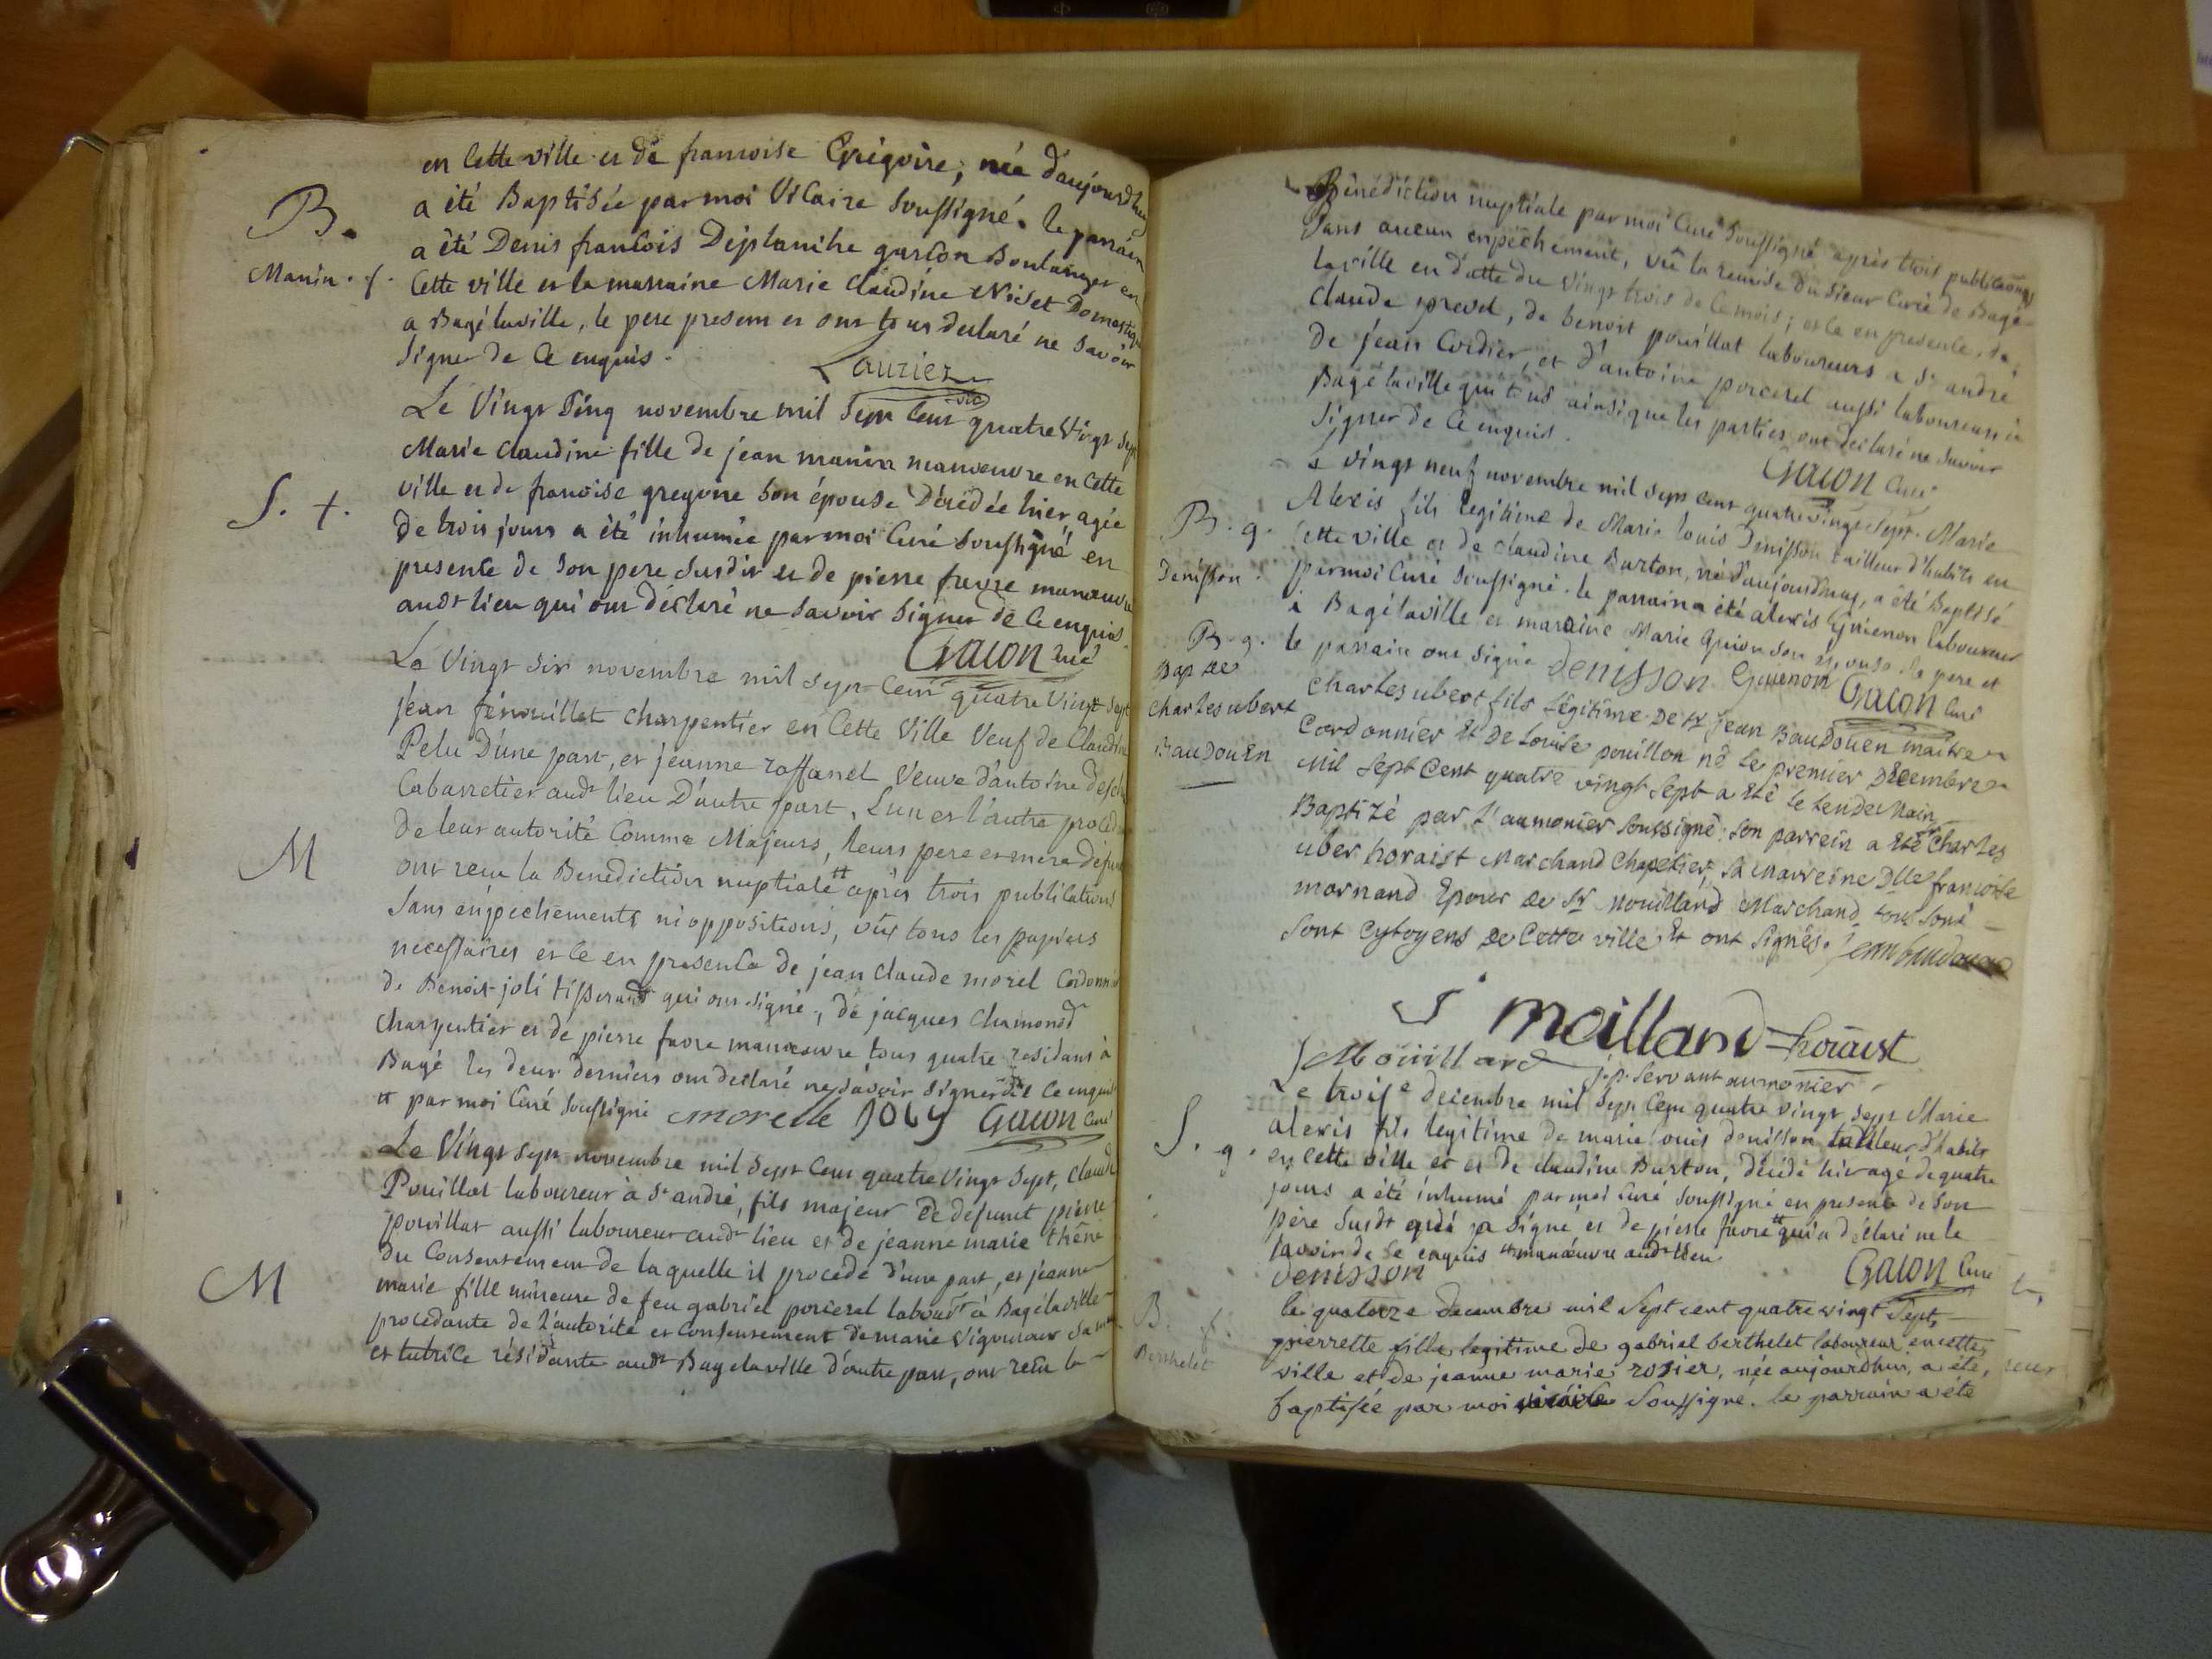 en cette ville et de francoise Grégoire, née d'aujourdhuy
B. a été Baptisée par moi Vicaire soussigné. le parrain
a été Denis francois Desplanche garcon Boulanger en
Manin. f. Cette ville et la marraine Marie claudine Nidet Domestique
a Bagé laville, le pere present et ont tous declaré ne savoir
signer de ce enquis.
Lauziez vic
Le Vingt Cinq novembre mil sept cent quatre Vingt sept
Marie claudine fille de jean manin manoeuvre en cette
S. f. ville et de francoise gregoire son épouse Décédée hier, agée
de trois jours a été inhumée par moi Curé soussigné en
presence de son pere susdit et de pierre favre manoeuvre
audt lieu qui ont déclaré ne savoir signer de ce enquis.
Gacon curé
Le Vingt six novembre mil sept cent quatre Vingt sept
jean fenouillet charpentier en Cette Ville Veuf de Claudine
Pelu D'une part, et jeanne raffanel Veuve d'antoine
Cabarretier audt lieu D'autre part, L'un et l'autre
de leur autorité Comme Majeurs, leurs pere et mere
M ont recu la Benediction nuptiale tt après trois publications
sans enpechements ni oppositions, vûx tous les papiers
necessaires et ce en presence de jean claude morel Cordonnier
de Benoit joli tisserand qui ont signé, de jacques chamonod
charpentier et de pierre favre manoeuvre tous quatre residans à
Bagé les deux derniers ont declaré ne savoir signer de ce enquis
tt par moi Curé soussigné morelle joly Gacon curé
Le Vingt sept novembre mil sept cent quatre Vingt sept, claude
Pouillat laboureur à St andré, fils majeur de defunt pierre
pouillat aussi laboureur audt lieu et de jeanne marie thêne
du Consentement de laquelle il procede d'une part, et jeanne
M marie fille mineure de feu gabriel porcerel labourr à Bagé laville
procedante de l'autorité et consentement de marie Vigoureux sa mere
et tutrice résidante audt Bagé laville d'autre part, ont recu la
Bénédiction nuptiale par moi Curé soussigné après trois publications
sans aucun enpêchement, vû la remise du sieur Curé de Bagé
laville en datte du Vingt trois de ce mois; et ce en presence, de
claude prevel, de benoit pouillat laboureurs a St andré
de jean Cordier, et d'antoine porcerel aussi laboureurs à
Bagé laville qui tous ainsi que les parties ont déclaré ne savoir
signer de ce enquis.
Gacon curé
Le vingt neuf novembre mil sept cent quatre vingt sept. Marie
B. g. Alexis fils legitime de Marie louis Denisson tailleur d'habits en
Denisson. Cette ville et de claudine Burton, né d'aujourdhuy, a été Baptisé
par moi Curé soussigné. le parrain a été alexis Guienon laboureur
à Bagé laville et maraine Marie Guion son épouse le pere et
B. g. le parrain ont signé Denisson Guienon Gacon curé
Bap de
charles ubert
Baudouin
charles ubert fils Légitime De sr jean Baudouen maitre
Cordonnier Et De Louise pouillon né Le premier Décembre
mil sept Cent quatre vingt sept a Eté le Lendemain
Baptizé par l'aumonier soussigné: son parrein a Eté sr Charles
uber horaist Marchand Chapelier, sa marreine Dlle francoise
mornand Epouse de sr mouilland Marchand tous
sont Cytoyens de Cette ville Et ont signés. jean baudouen
moilland horaist
Moüilland j. p. servant aumonier
Le troise decembre mil sept cent quatre vingt sept Marie
S. g. alexis fils legitime de marie louis denisson tailleur d'habits
en cette ville et et de claudine Burton, décédé hier agé de quatre
jours a été inhumé par moi Curé soussigné en presence de son
père susdt qui a signé et de pierre favre tt qui a déclaré ne le
savoir de ce enquis tt manoeuvre audt lieu
Denisson Gacon curé
B. f. le quatorze decembre mil sept cent quatre vingt sept
Berthelet pierrette fille legitime de gabriel berthelet laboureur en cette
ville et de jeanne marie rosier, née aujourdhui, a été,
baptisée par moi vicaire soussigné. le parrain a été